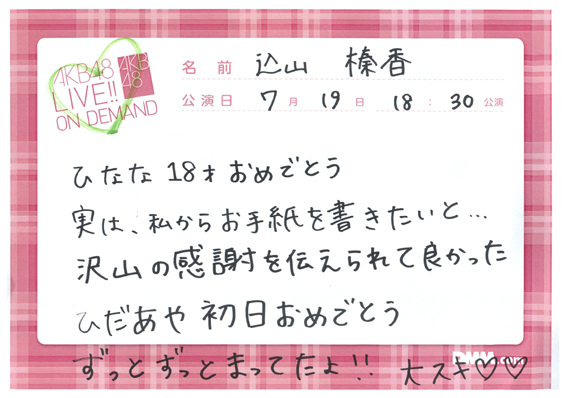 AKB48
LIVE!!
ON DEMAND
AKB
48
名前 込山 榛香
公演日 7月19日 18:30公演
ひなな 18才おめでとう
実は、私からお手紙を書きたいと…
沢山の感謝を伝えられて良かった
ひだあや 初日おめでとう
ずっとずっとまってたよ!! 大スキ♡♡
DMM.com